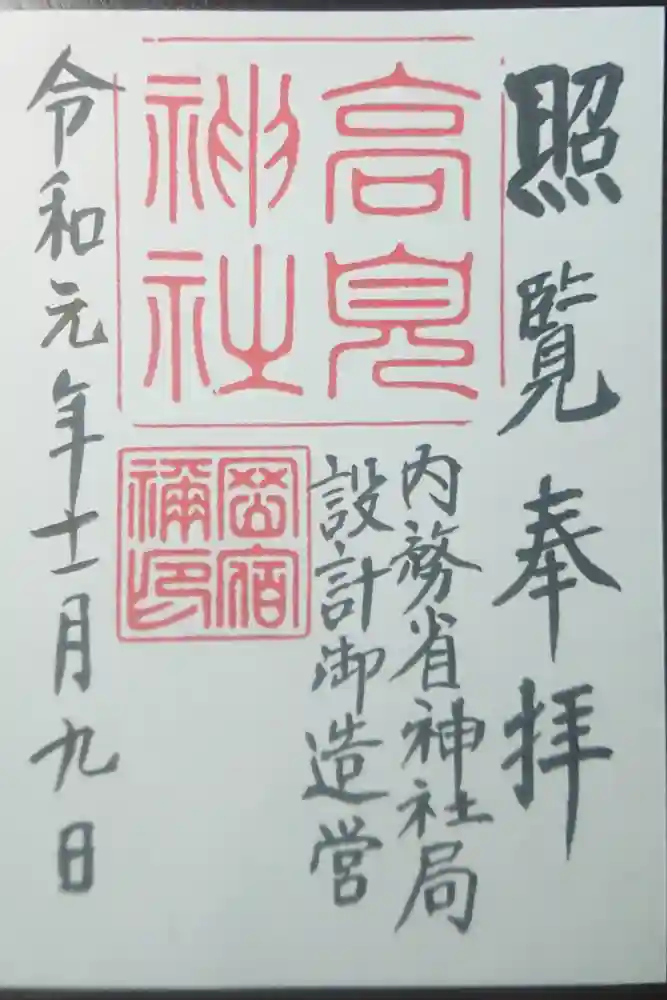 照覧奉拝
高見
神社
内務省神社局
設計御造営
令和元年十一月九日